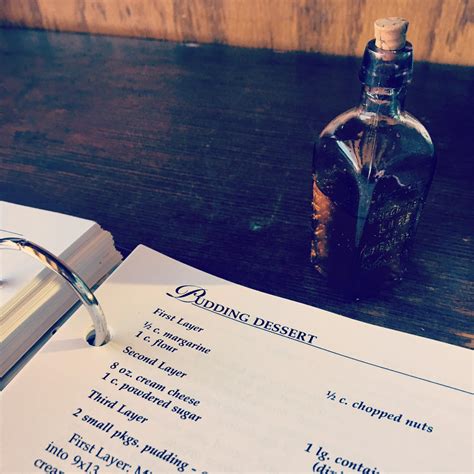 PUDDING DESSERT
First Layer
½ c. margarine
1 c. flour
½ c. chopped nuts
Second Layer
8 oz. cream cheese
1 c. powdered sugar
1 lg. contain
(div
Third Layer
2 small pkgs. pudding -
First Layer: Mi
into 9x13
crea